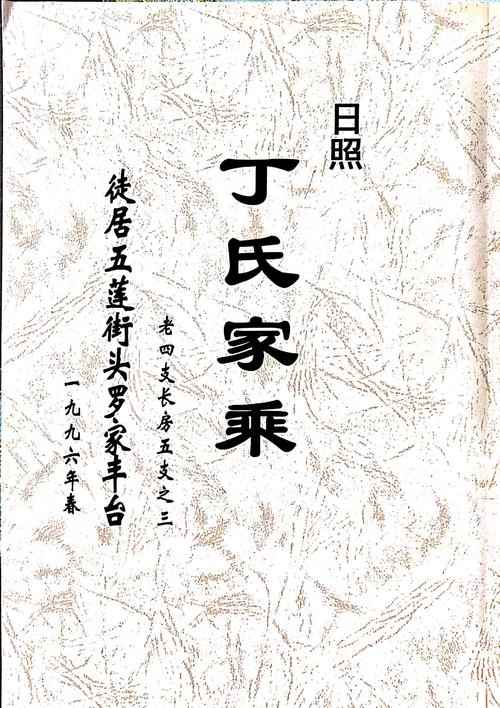 日照
丁氏家乘
老四支长房五支之三
徒居五莲街头罗家丰台
一九九六年春